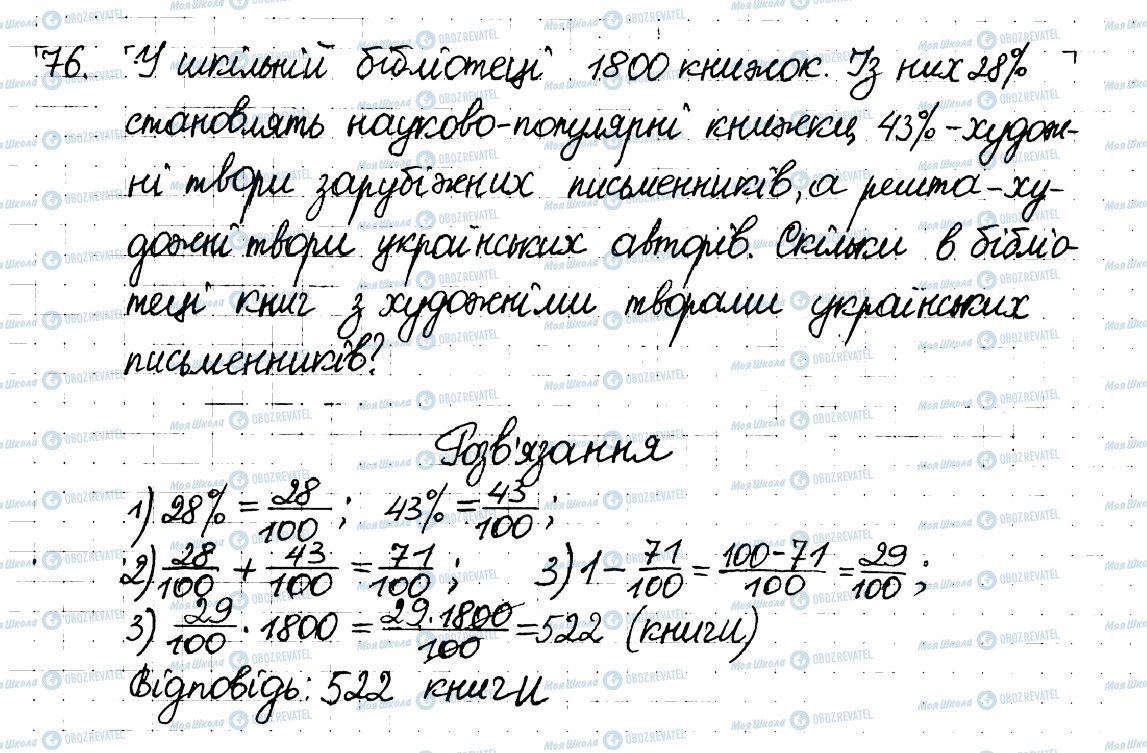 76. У шкільній бібліотеці 1800 книжок. Із них 28%
становлять науково-популярні книжки, 43% - худож-
ні твори зарубіжних письменників, а решта - ху-
дожні твори українських авторів. Скільки в бібліо
теці книг з художніми творами українських
письменників?
Розв'язання
1) 28% = 28/100; 43% = 43/100;
2) 28/100 + 43/100 = 71/100; 3) 1 - 71/100 = 100-71/100 = 29/100;
3) 29/100 · 1800 = 29·1800/100 = 522 (книги)
Відповідь: 522 книги